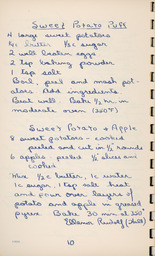 Sweet Potato Puff
4 large sweet potatoes
4 T. butter ½ c sugar
2 well beaten eggs
2 tsp baking powder
1 tsp salt
Boil, peel and mash pot-
atoes Add ingredients
Beat well. Bake ½ hr. in
moderate oven (350°F)
Sweet Potato & Apple
8 sweet potatoes - cooked
peeled and cut in ½" rounds
6 apples - peeled ½ slices and
cooked
Mix ½ c butter, 1 c water
1 c sugar, 1 tsp salt heat
and pour over layers of
potato and apple in greased
pyrex. Bake 30 min at 350°
Ellenor
10